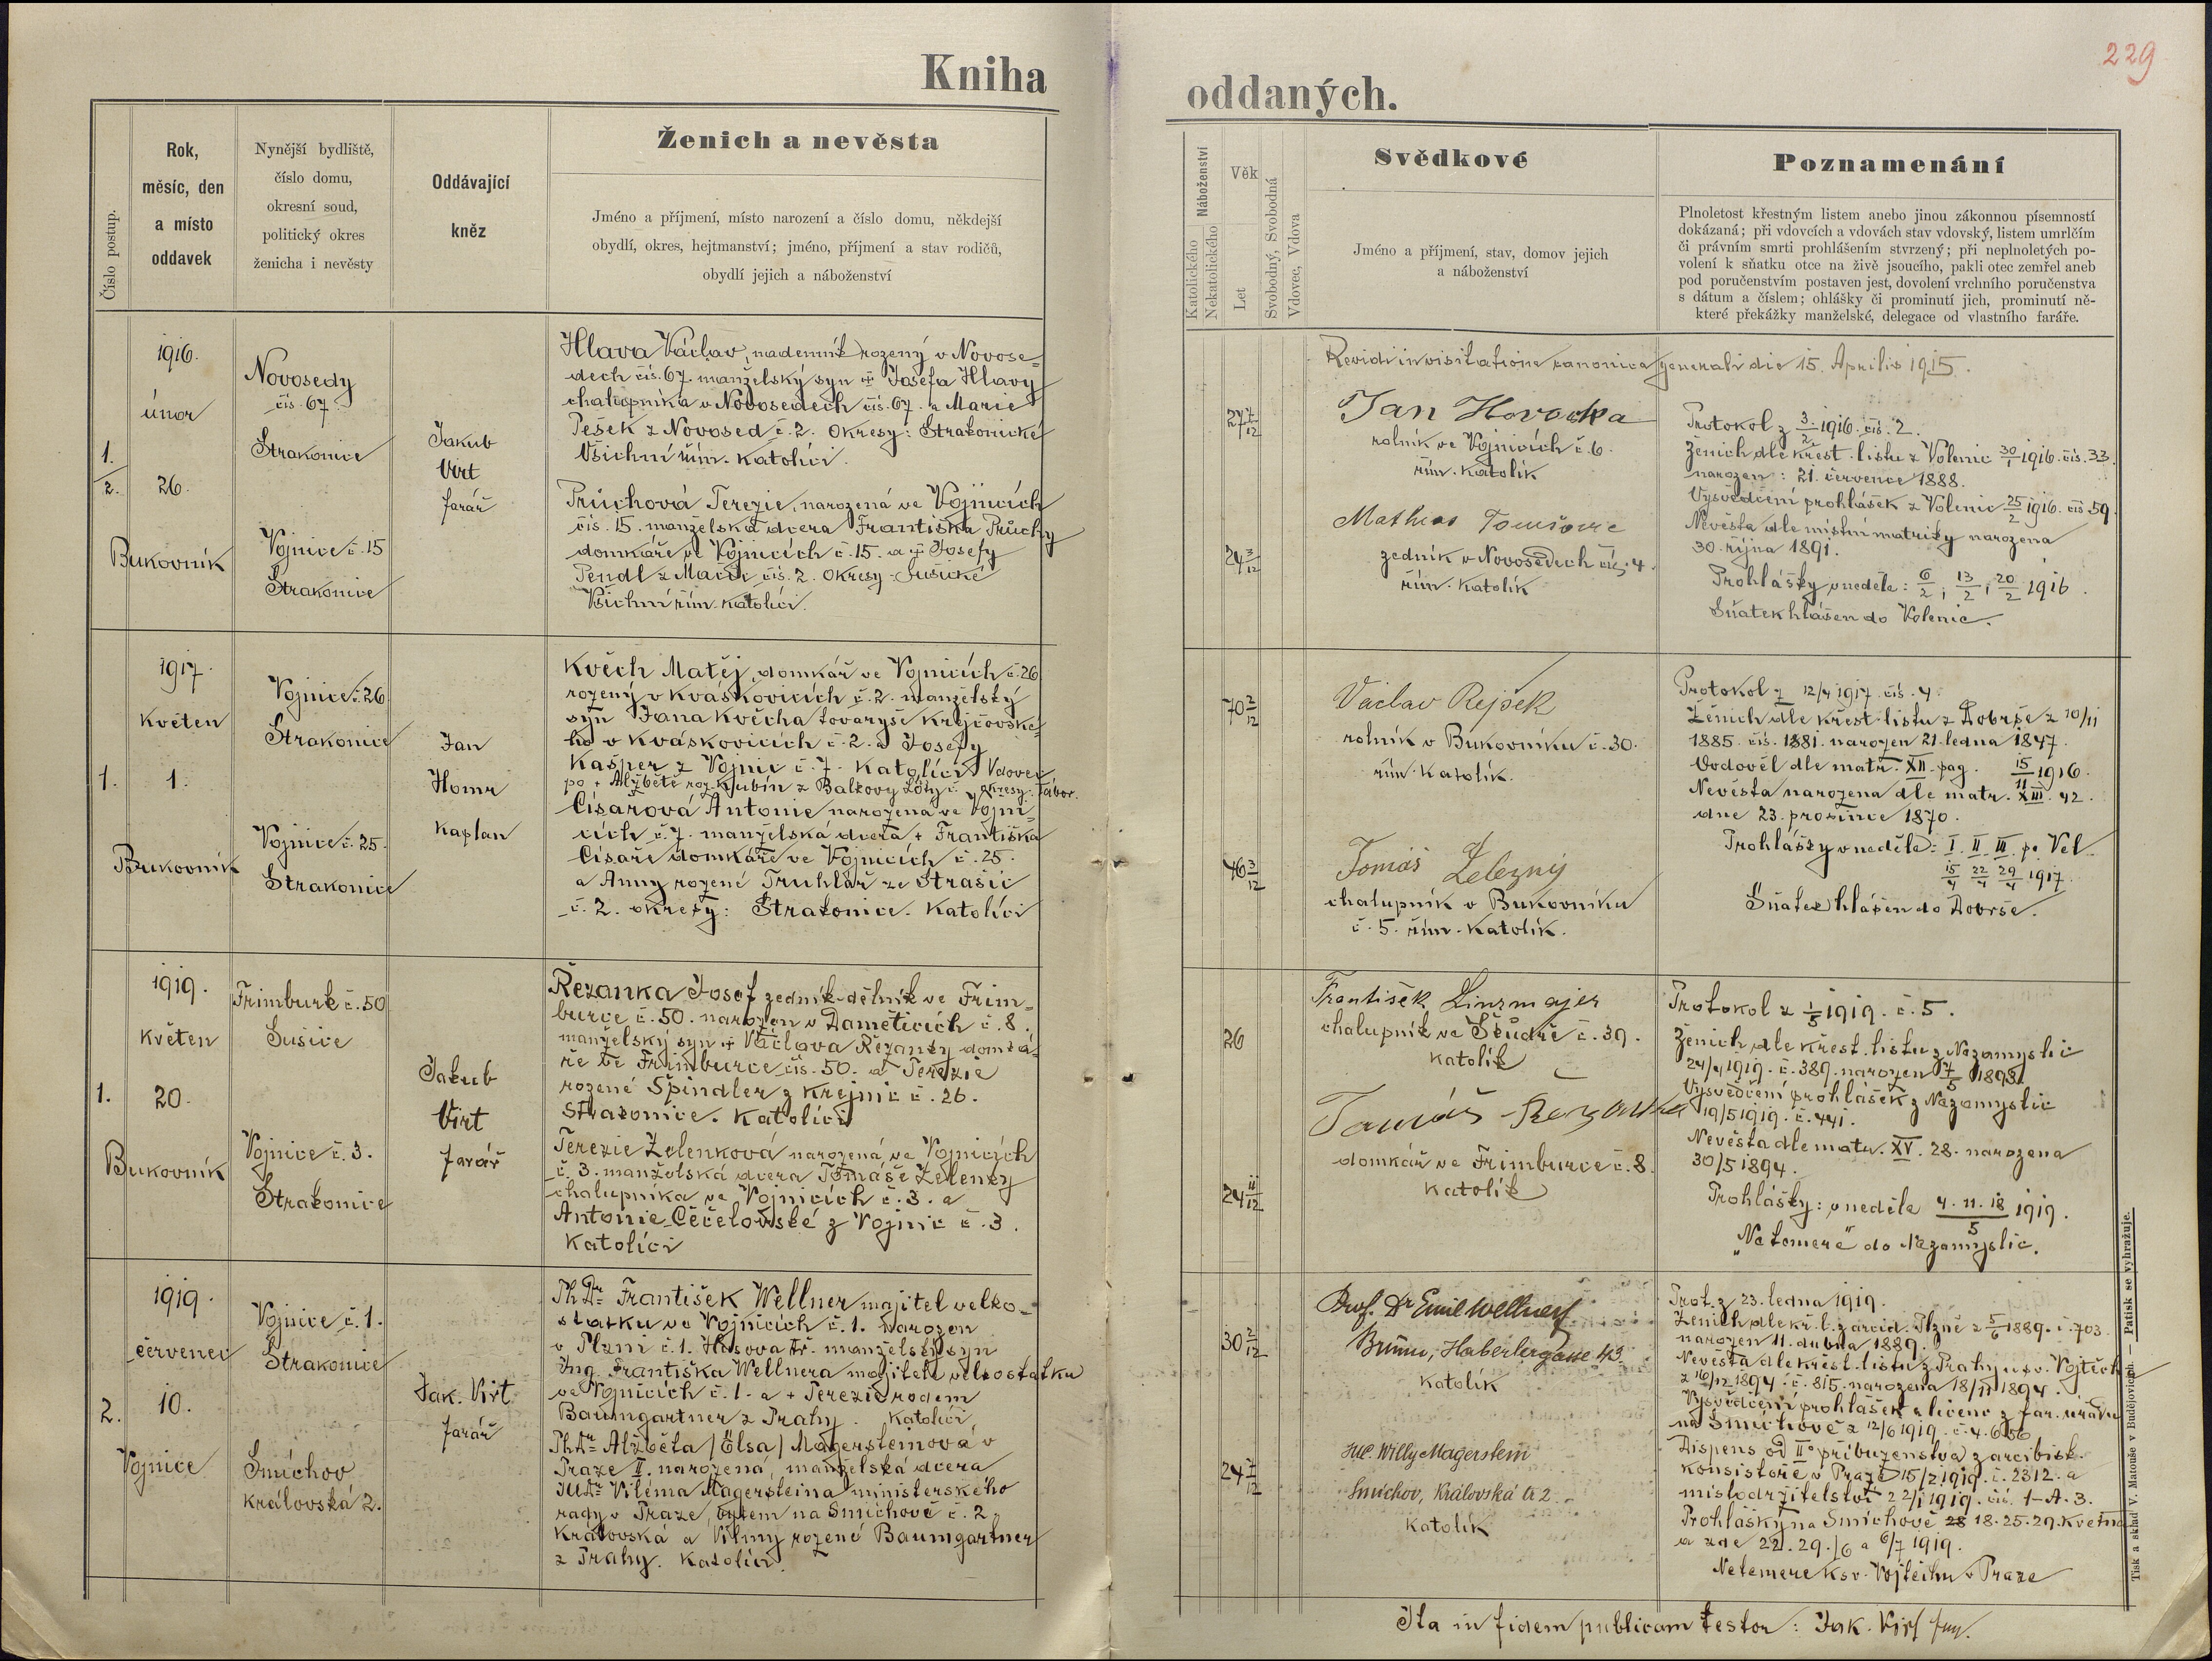 229
Kniha oddaných.
Číslo postup.
Rok,
měsíc, den
a místo
oddavek
Nynější bydliště,
číslo domu,
okresní soud,
politický okres
ženicha i nevěsty
Oddávající
kněz
Ženich a nevěsta
Jméno a příjmení, místo narození a číslo domu, někdejší
obydlí, okres, hejtmanství; jméno, příjmení a stav rodičů,
obydlí jejich a náboženství
Náboženství
Katolického
Nekatolického
Věk
Let
Svobodný, Svobodná
Vdovec, Vdova
Svědkové
Jméno a příjmení, stav, domov jejich
a náboženství
Poznamenání
Plnoletost křestným listem anebo jinou zákonnou písemností
dokázaná; při vdovcích a vdovách stav vdovský, listem umrlčím
či právním smrti prohlášením stvrzený; při neplnoletých po-
volení k sňatku otce na živě jsoucího, pakli otec zemřel aneb
pod poručenstvím postaven jest, dovolení vrchního poručenstva
s dátum a číslem; ohlášky či prominutí jich, prominutí ně-
které překážky manželské, delegace od vlastního faráře.
Revidi in visitatione canonica generali die 15. Aprilis 1915.
1./2.
1916.
únor
26.
Bukovník
Novosedy
čís. 67.
Strakonice
Vojnice č. 15
Strakonice
Jakub
Virt
farář
Hlava Václav, nádenník rozený v Novose-
dech čís. 67. manželský syn + Josefa Hlavy
chalupníka v Novosedech čís. 67. a Marie
Pešek z Novosed č. 2. Okresy: Strakonické
Všichni řím. katolíci.
Průchová Terezie, narozená ve Vojnicích
čís. 15. manželská dcera Františka Průchy
domkáře ve Vojnicích č. 15. a + Josefy
Pendl z Mačic čís. 2. Okresy Sušické
Všichni řím. katolíci.
27 7/12
24 3/12
Jan Horočka
rolník ve Vojnicích č. 6.
řím. katolík
Mathias Tomšovic
zedník v Novosedech čís. 4.
řím. katolík
Protokol z 3./2. 1916. čís. 2.
Ženich dle křest. listu z Volenic 30/1 1916. čís. 33.
narozen: 21. července 1888.
Vysvědčení prohlášek z Volenic 25/2 1916. čís 59.
Nevěsta dle místní matriky narozena
30. října 1891.
Prohlášky v neděle: 6/2, 13/2, 20/2 1916.
Sňatek hlášen do Volenic.
1.
1917.
Květen
1.
Bukovník
Vojnice č. 26
Strakonice
Vojnice č. 25.
Strakonice
Jan
Homr
Kaplan
Květch Matěj, domkář ve Vojnicích č. 26
rozený v Kváskovicích č. 2. manželský
syn Jana Květcha tovaryše krejčovské-
ho v Kváskovicích č. 2. a Josefy
Kašper z Vojnic č. 7. Katolíci Vdovec
po + Alžbětě roz. Kubín z Balkovy Lhoty č. okresy: Tábor.
Císařová Antonie narozena ve Vojni-
cích č. 7. manželská dcera + Františka
Císaře domkáře ve Vojnicích č. 25.
a Anny rozené Truhlář ze Strašic
č. 2. okresy: Strakonice. Katolíci
70 3/12
46 3/12
Václav Rejšek
rolník v Bukovníku č. 30.
řím. katolík.
Tomáš Železný
chalupník v Bukovníku
č. 5. řím. katolík.
Protokol z 12/4 1917. čís. 4.
Ženich dle křest. listu z Dobrše z 10/11
1885. čís. 1881. narozen 21. ledna 1847.
Ovdověl dle matr. XII. pag. 15/11 1916.
Nevěsta narozena dle matr. XIII. 42.
dne 23. prosince 1870.
Prohlášky v neděle: I. II. III. po Vel.
15/4 22/4 29/4 1917.
Sňatek hlášen do Dobrše.
1.
1919.
Květen
20.
Bukovník
Frimburk č. 50
Sušice
Vojnice č. 3.
Strakonice
Jakub
Virt
farář
Řezanka Josef zedník-dělník ve Frim-
burce č. 50. narozen v Daměticích č. 8.
manželský syn + Václava Řezanky domká-
ře ve Frimburce čís. 50. a Terezie
rozené Špindler z Krejnic č. 26.
Strakonice. Katolíci
Terezie Zelenková narozená ve Vojnicích
č. 3. manželská dcera Tomáše Zelenky
chalupníka ve Vojnicích č. 3. a
Antonie Čečelovské z Vojnic č. 3.
Katolíci
26
24 11/12
František Linzmajer
chalupník ve č. 39.
katolík
Tomáš Řezanka
domkář ve Frimburce č. 8.
katolík
Protokol z 1/5 1919. č. 5.
Ženich dle křest. listu z Nezamyslic
24/4 1919. č. 389. narozen 7/5 1893.
Vysvědčení prohlášek z Nezamyslic
19/5 1919. č. 441.
Nevěsta dle matr. XV. 28. narozena
30/5 1894.
Prohlášky: v neděle 4. 11. 18/5 1919.
„Ne temere" do Nezamyslic.
2.
1919.
červenec
10.
Vojnice
Vojnice č. 1.
Strakonice
Smíchov
Královská 2.
Jak. Virt
farář
PhDr. František Wellner majitel velko-
statku ve Vojnicích č. 1. narozen
v Plzni č. 1. Husova tř. manželský syn
Ing. Františka Wellnera majitele velkostatku
ve Vojnicích č. 1. a + Terezie rodem
Baumgartner z Prahy. Katolíci
PhDr. Alžběta /Elsa/ Magersteinová v
Praze II. narozená, manželská dcera
JUDr. Viléma Magersteina ministerského
rady v Praze, bytem na Smíchově č. 2
Královská a Vilmy rozené Baumgartner
z Prahy. Katolíci.
30 2/12
24 7/12
Prof. Dr Emil Wellner
Brünn, Haberlergasse 43.
katolík
JUC. Willy Magerstein
Smíchov, Královská tř. 2.
katolík
Prot. z 23. ledna 1919.
Ženich dle kř. l. z arcid. Plzně z 5/6 1889. č. 703.
narozen 11. dubna 1889.
Nevěsta dle křest. listu z Prahy u sv. Vojtěcha
z 16/12 1894. č. 815. narozena 18/11 1894.
Vysvědčení prohlášek a licenc z far. úřadu
na Smíchově z 12/6 1919. č. 4.
Dispens od II° příbuzenstva z arcibisk.
konsistoře v Praze 15/2 1919. č. 2312. a
místodržitelství 22/1 1919. čís. 1-A. 3.
Prohlášky na Smíchově 18. 25. 29. května
a zde 22. 29./6 a 6/7 1919.
Netemere k sv. Vojtěchu v Praze
Ita in fidem publicam testor: Jak. Virt far.
Tisk a sklad V. Matouše v Budějovicích. — Patisk se vyhražuje.